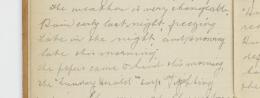 The weather is very changeable.
Rain early last night, freezing
late in the night, and snowing
late this morning.
The paper came to hand this morning,
the "Sunday Herald"